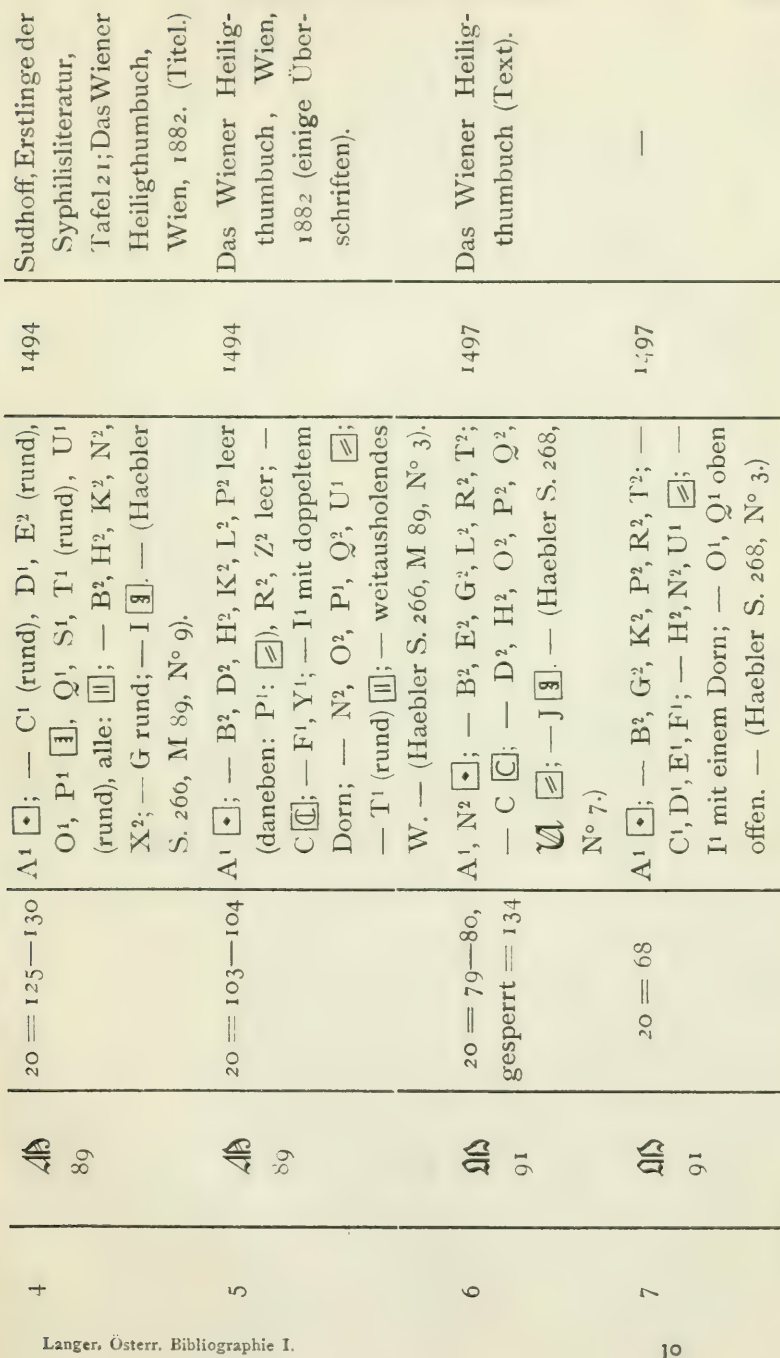 4
89
20 = 125—130
A¹ ; — C¹ (rund), D¹, E² (rund),
O¹, P¹ , Q¹, S¹, T¹ (rund), U¹
(rund), alle: ; — B², H², K², N²,
X²; — G rund; — I . — (Haebler
S. 266, M 89, N° 9).
1494
Sudhoff, Erstlinge der
Syphilisliteratur,
Tafel 21; Das Wiener
Heiligthumbuch,
Wien, 1882. (Titel.)
5
89
20 = 103—104
A¹ ; — B², D², H², K², L², P² leer
(daneben: P¹: ), R², Z² leer; —
C ; — F¹, Y¹; — I¹ mit doppeltem
Dorn; — N², O², P¹, Q², U¹ ;
— T¹ (rund) ; — weitausholendes
W. — (Haebler S. 266, M 89, N° 3).
1494
Das Wiener Heilig-
thumbuch, Wien,
1882 (einige Über-
schriften).
6
91
20 = 79—80,
gesperrt = 134
A¹, N² ; — B², E², G², L², R², T²;
— C ; — D², H², O², P², Q²,
; — J . — (Haebler S. 268,
N° 7.)
1497
Das Wiener Heilig-
thumbuch (Text).
7
91
20 = 68
A¹ ; — B², G², K², P², R², T²; —
C¹, D¹, E¹, F¹; — H², N², U¹ ; —
I¹ mit einem Dorn; — O¹, Q¹ oben
offen. — (Haebler S. 268, N° 3.)
1497
—
Langer, Österr. Bibliographie I.
10